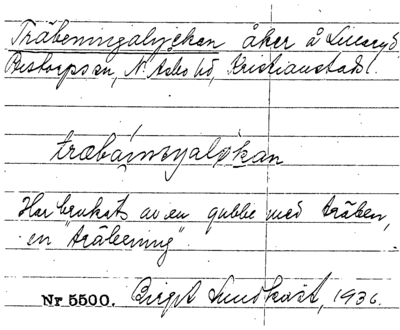 Träbeningalyckan åker å Lillaryd
Perstorps sn, N. Åsbo hd, Kristianstads l.
træbáinŋalykan
Har brukats av en gubbe med träben,
en "träbening".
Nr 5500. Birgit Lundkvist, 1936.